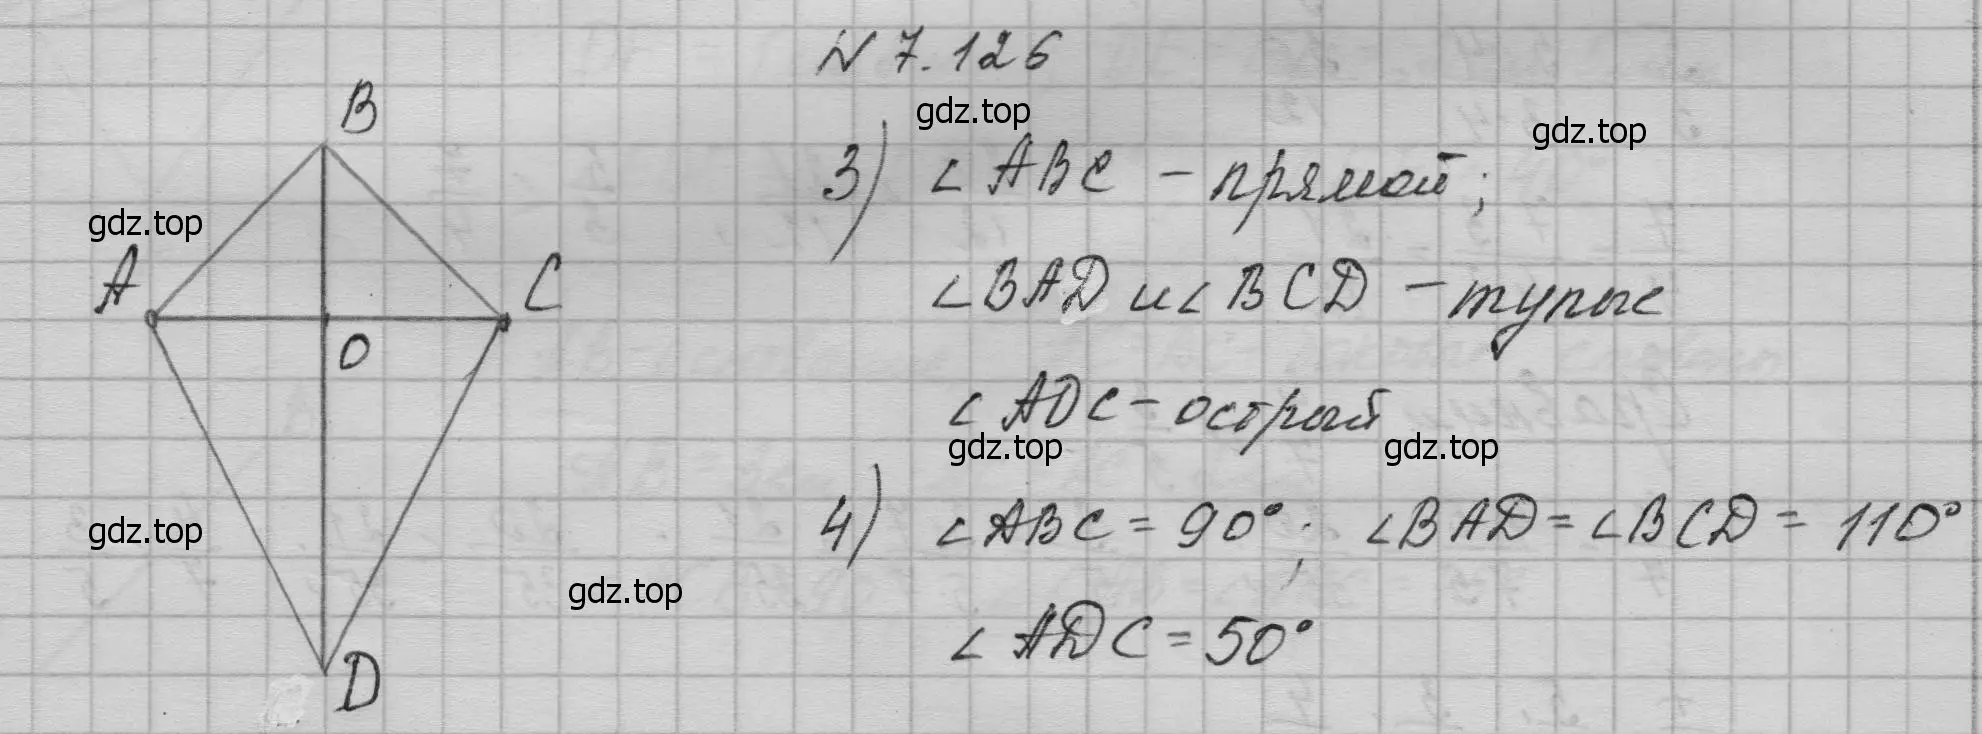 № 7.126
gdz.top
gdz.top
B
3) ∠ABC – прямой;
gdz.top
A
C
∠BAD и ∠BCD – тупые
O
∠ADC – острый
gdz.top
gdz.top
4) ∠ABC = 90°; ∠BAD = ∠BCD = 110°
gdz.top
gdz.top
∠ADC = 50°
D